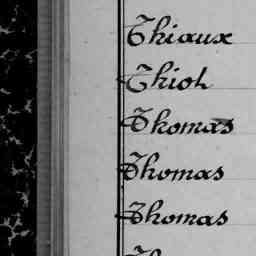 Thiaux
Thiol
Thomas
Thomas
Thomas